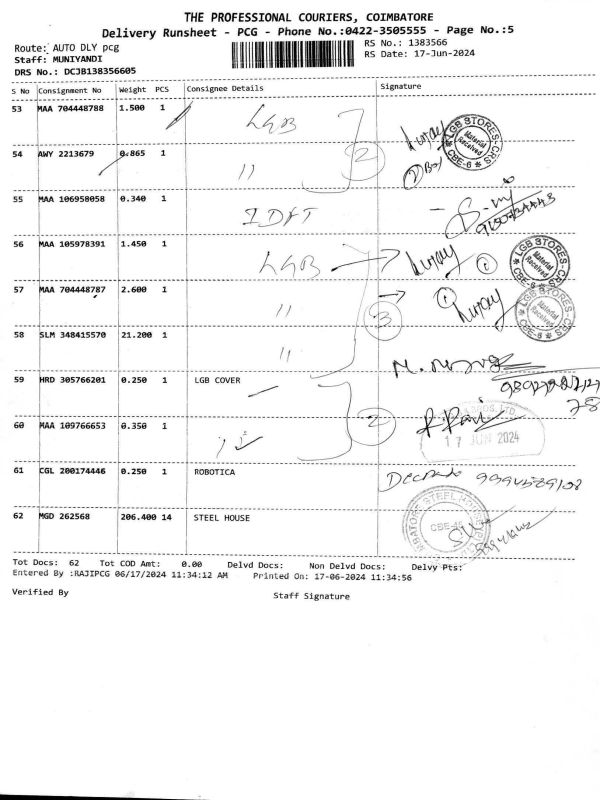 THE PROFESSIONAL COURIERS, COIMBATORE
Delivery Runsheet - PCG - Phone No.:0422-3505555 - Page No.:5
Route: AUTO DLY pcg
RS No.: 1383566
Staff: MUNIYANDI
RS Date: 17-Jun-2024
DRS No.: DCJB138356605
S No Consignment No Weight PCS Consignee Details Signature
53 MAA 704448788 1.500 1 LGB
54 AWY 2213679 0.865 1 "
2
LGB STORES-CRS
Material Received
CBE-6
55 MAA 106958058 0.340 1
56 MAA 105978391 1.450 1 LGB
1
LGB STORES-CRS
Material Received
CBE-6
57 MAA 704448787 2.600 1 "
1
LGB STORES-CRS
Material Received
CBE-6
3
58 SLM 348415570 21.200 1 "
59 HRD 305766201 0.250 1 LGB COVER
2
60 MAA 109766653 0.350 1
17 JUN 2024
61 CGL 200174446 0.250 1 ROBOTICA
62 MGD 262568 206.400 14 STEEL HOUSE
Tot Docs: 62 Tot COD Amt: 0.00 Delvd Docs: Non Delvd Docs: Delvy Pts:
Entered By :RAJIPCG 06/17/2024 11:34:12 AM Printed On: 17-06-2024 11:34:56
Verified By
Staff Signature